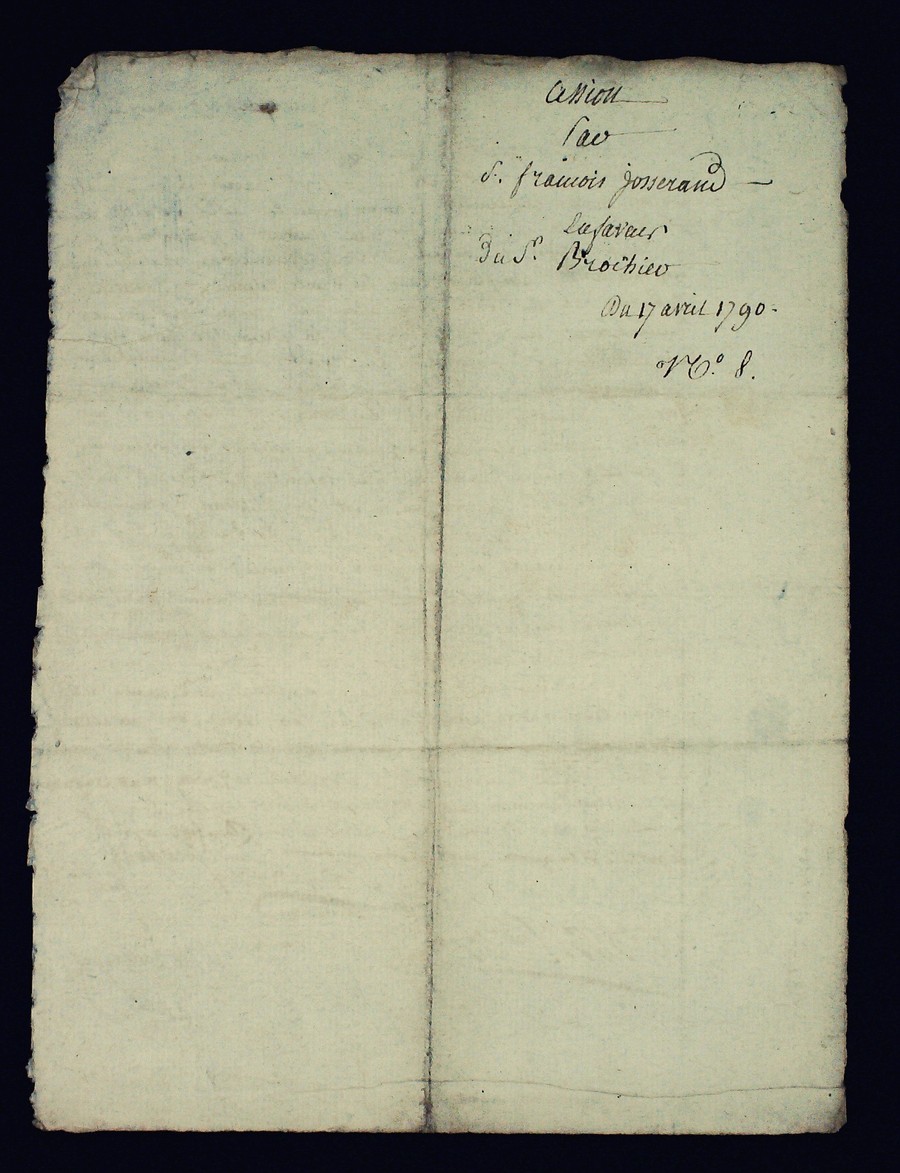 Cession
Par
Sr. françois Josserand
En faveur
Du Sr. Brochier
Du 17 avril 1790.
No. 8.